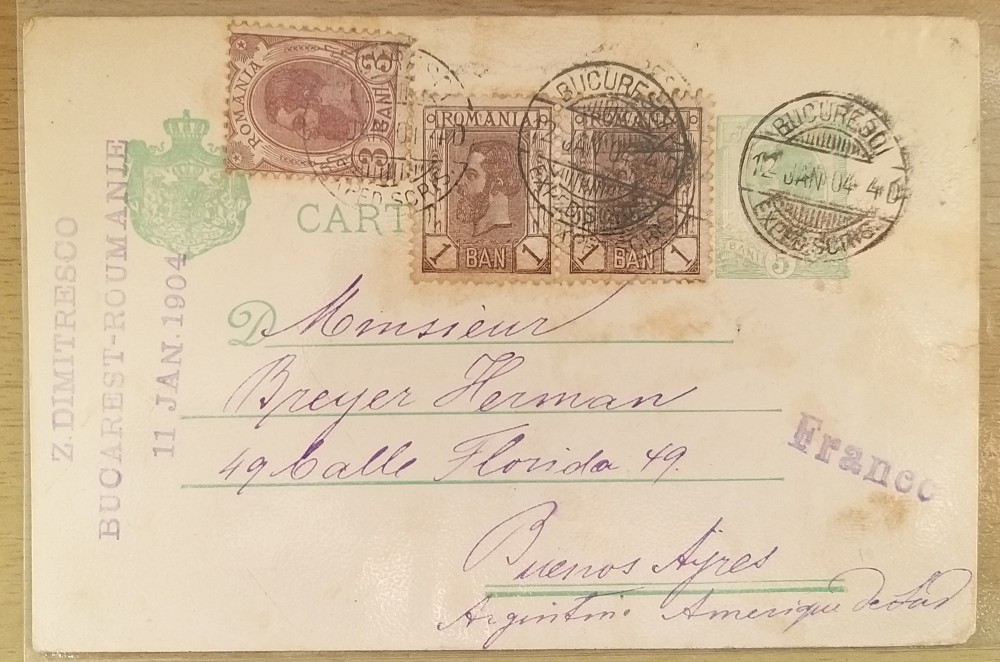 ROMANIA
3 BANI 3
ROMANIA
1 BAN 1
ROMANIA
1 BAN 1
BUCURESCI
12 JAN 04 4
BUCURESCI
12 JAN 04 4
BANI 5
CART
Z. DIMITRESCO
BUCAREST-ROUMANIE
11 JAN. 1904
D Monsieur
Breyer Herman
49 Calle Florida 49.
Franco
Buenos Ayres
Argentine Amerique de Sud